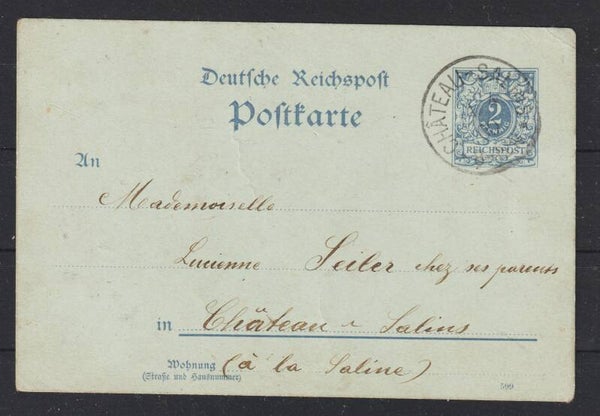 Deutsche Reichspost
Postkarte
CHÂTEAU-SALINS
2
REICHSPOST
An
Mademoiselle
Lucienne Seiler chez ses parents
in Château-Salins
Wohnung (à la Saline)
(Straße und Hausnummer)
599